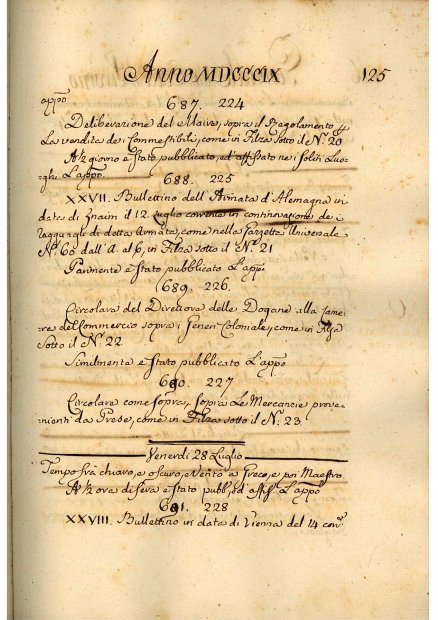 Anno MDCCCIX 125
appo
687. 224
Deliberazione del Maire, sopra il Regolamento p
La vendita dei Commestibili, come in Filza sotto il N.º 20
giorno e Stato pubblicato, ed affissato nei soliti Luo-
ghi L'appo.
688. 225
XXVII. Bullettino dell'Armata d'Alemagna in
data di Znaim il 12. Luglio in continovazione dei
di detta Armata, come nella Gazzetta Universale
N.º 62 dall'A. al 6, in Filza sotto il N.º 21
Parimente e Stato pubblicato L'app.
689. 226.
Circolare del Direttore delle Dogane alla Came-
ra del Commercio sopra i Generi Coloniale, come in Filza
Sotto il N.º 22
Similmente e Stato pubblicato L'appo
690. 227
Circolare come sopra, sopra Le Mercanzie prove-
nienti da Prese, come in Filza sotto il N.º 23.
Venerdi 28 Luglio
Tempo frà chiaro, e oscuro, e Vento a Greco, e poi Maestro.
ora di sera e Stato pubb., ed affiss. L'appo
691. 228
XXVIII. Bullettino in data di Vienna del 14 cor.